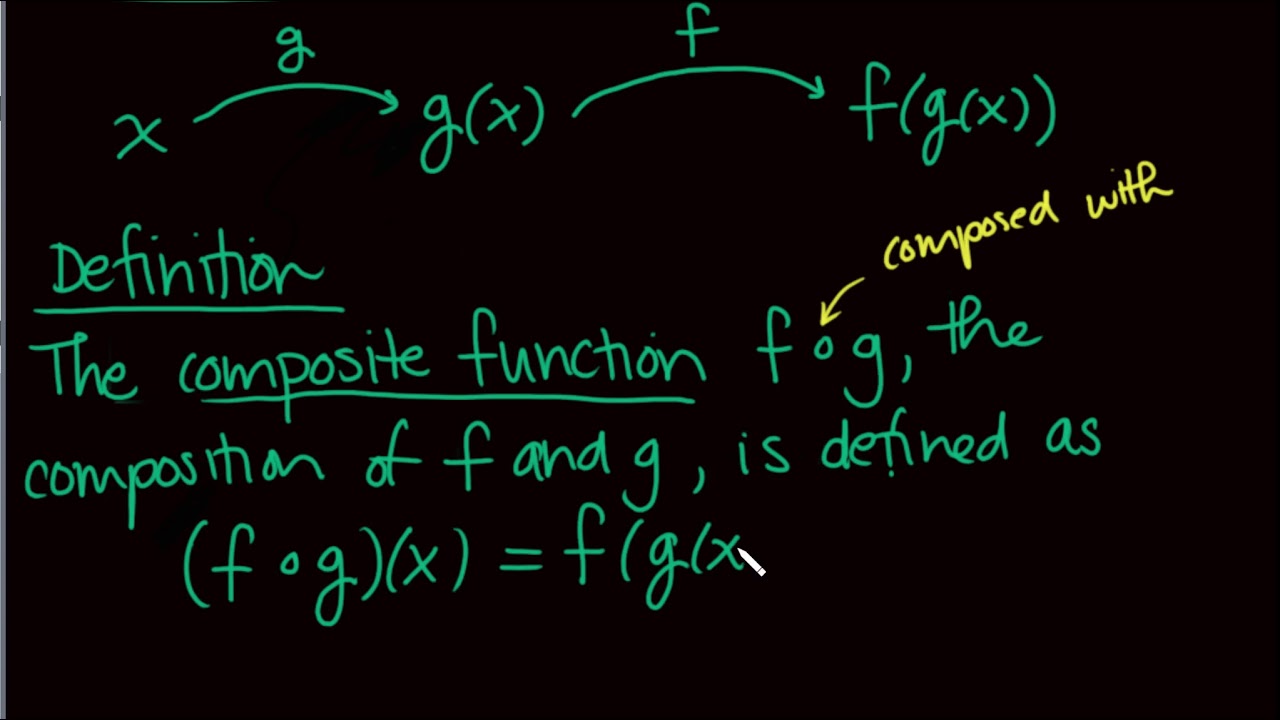 g f
x g(x) f(g(x))
composed with
Definition
The composite function f∘g, the
composition of f and g, is defined as
(f∘g)(x) = f(g(x